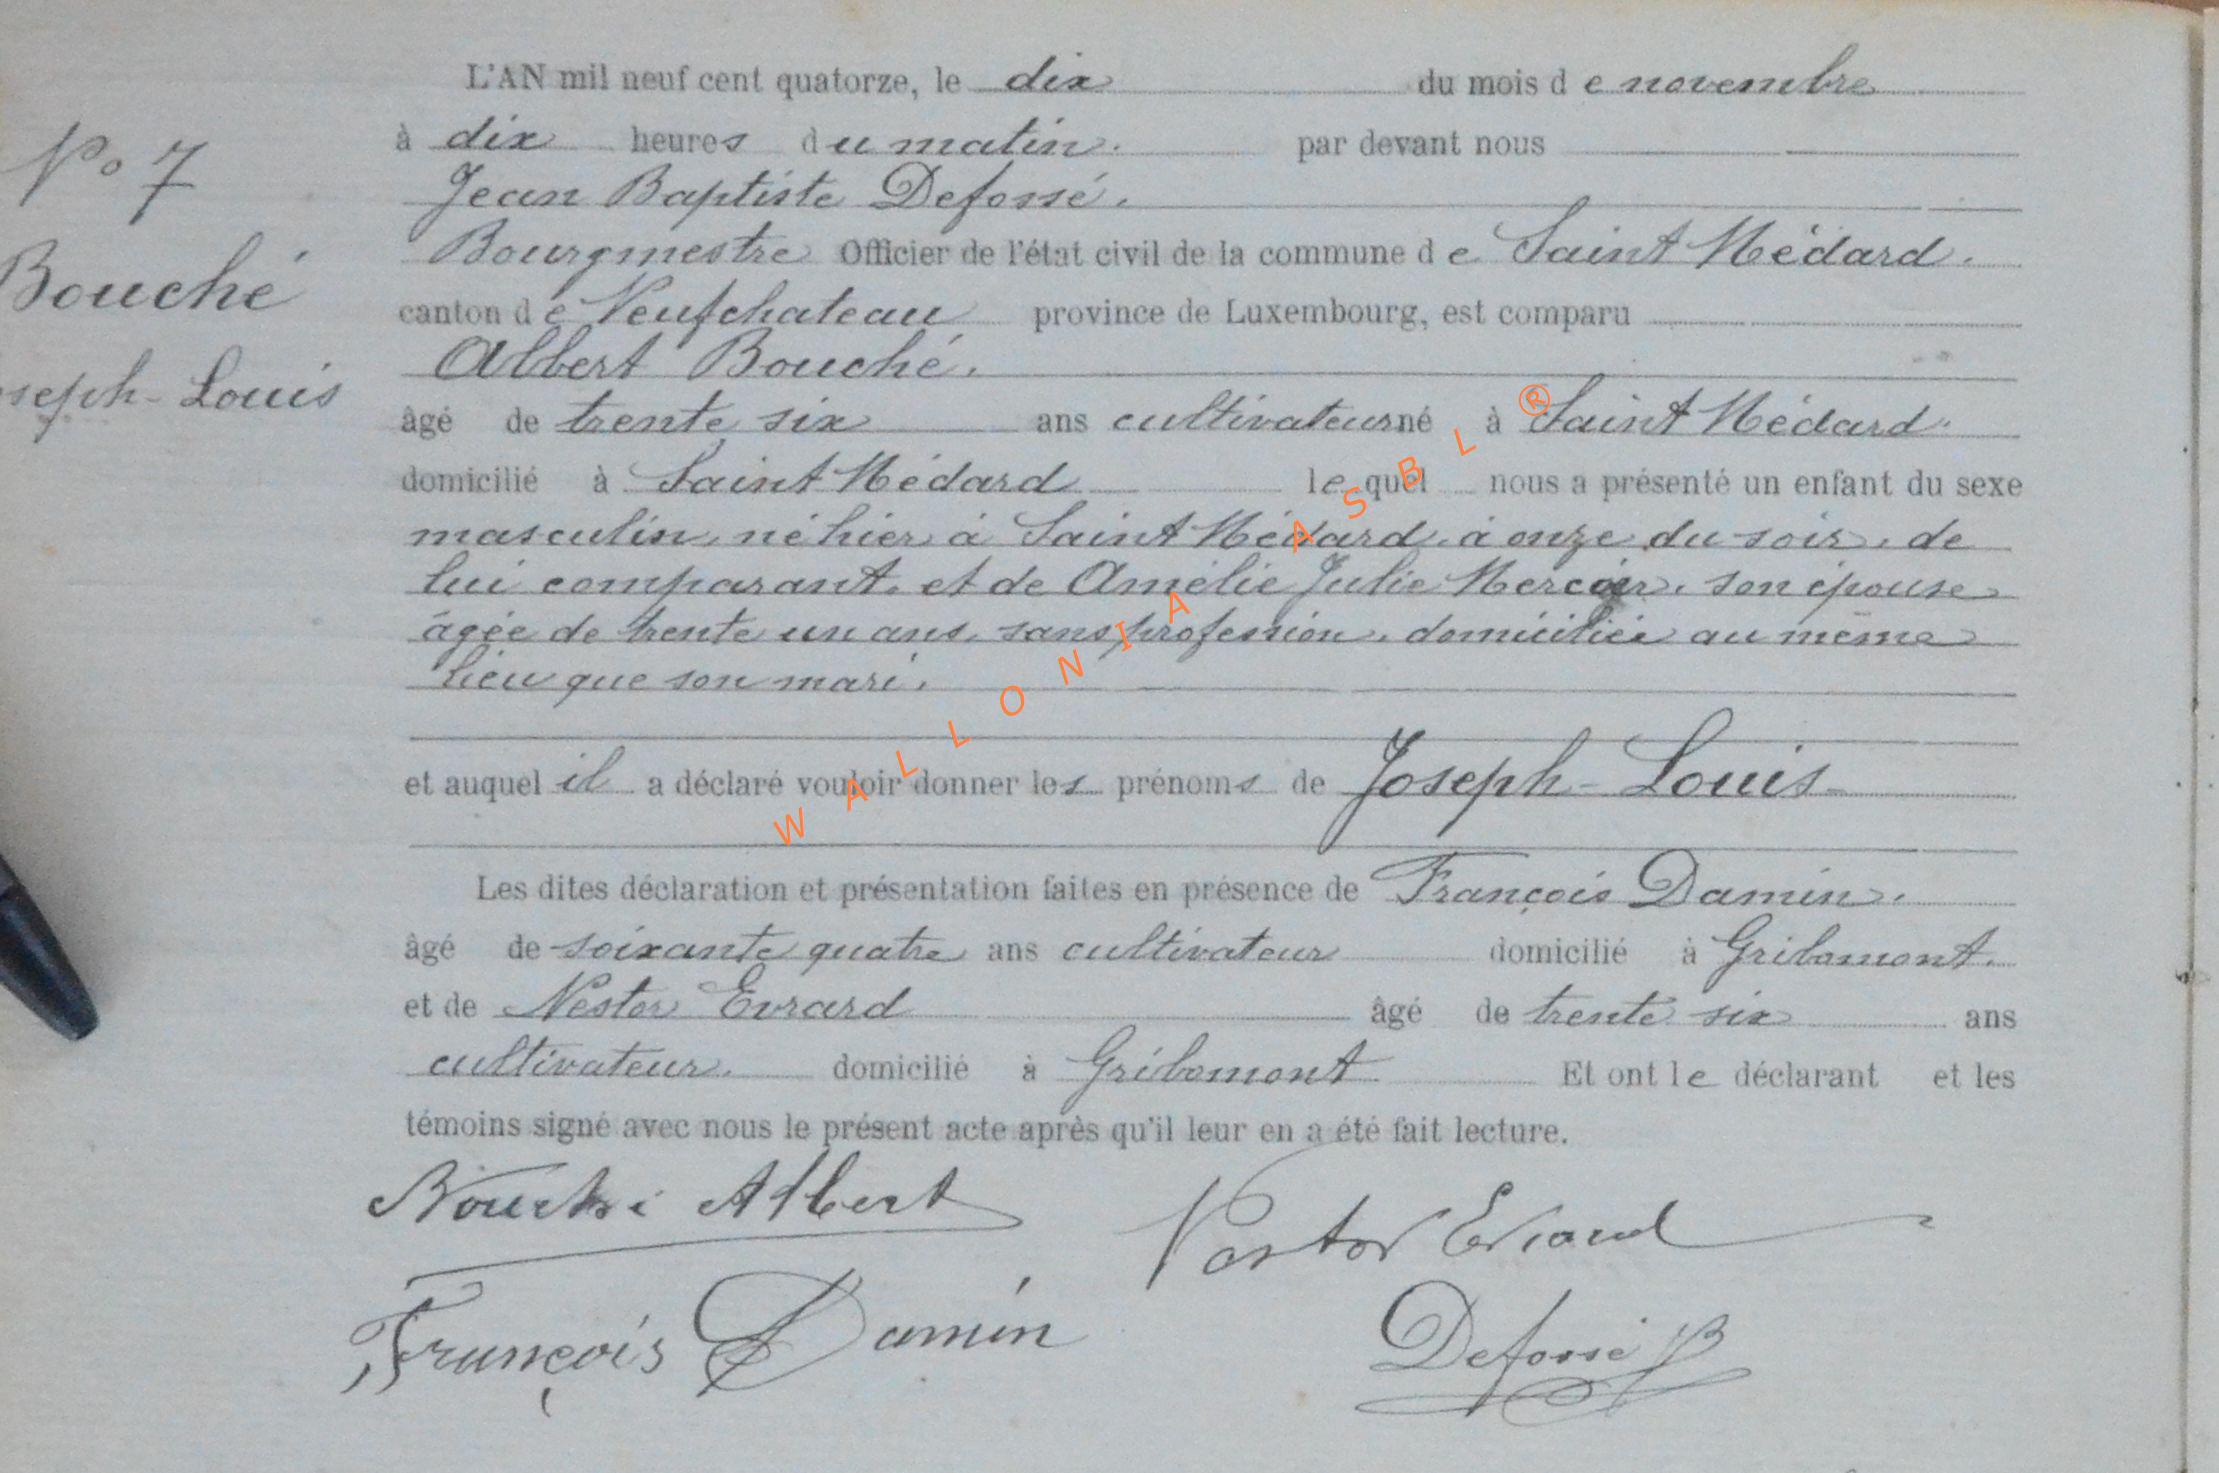 N° 7
Bouché
seph-Louis
L'AN mil neuf cent quatorze, le dix du mois de novembre
à dix heures du matin. par devant nous
Jean Baptiste Defossé.
Bourgmestre Officier de l'état civil de la commune de Saint Médard.
canton de Neufchateau province de Luxembourg, est comparu
Albert Bouché.
âgé de trente six ans cultivateur né à Saint Médard.
domicilié à Saint Médard lequel nous a présenté un enfant du sexe
masculin, né hier à Saint Médard, à onze du soir, de
lui comparant, et de Amélie Julie Mercier, son épouse
âgée de trente un ans, sans profession, domiciliée au même
lieu que son mari.
et auquel il a déclaré vouloir donner les prénoms de Joseph-Louis-
Les dites déclaration et présentation faites en présence de François Damin.
âgé de soixante quatre ans cultivateur domicilié à Gribomont.
et de Nestor Evrard âgé de trente six ans
cultivateur. domicilié à Gribomont Et ont le déclarant et les
témoins signé avec nous le présent acte après qu'il leur en a été fait lecture.
Bouché Albert Nestor Evrard
François Damin Defossé JB
WALLONIA ASBL ®